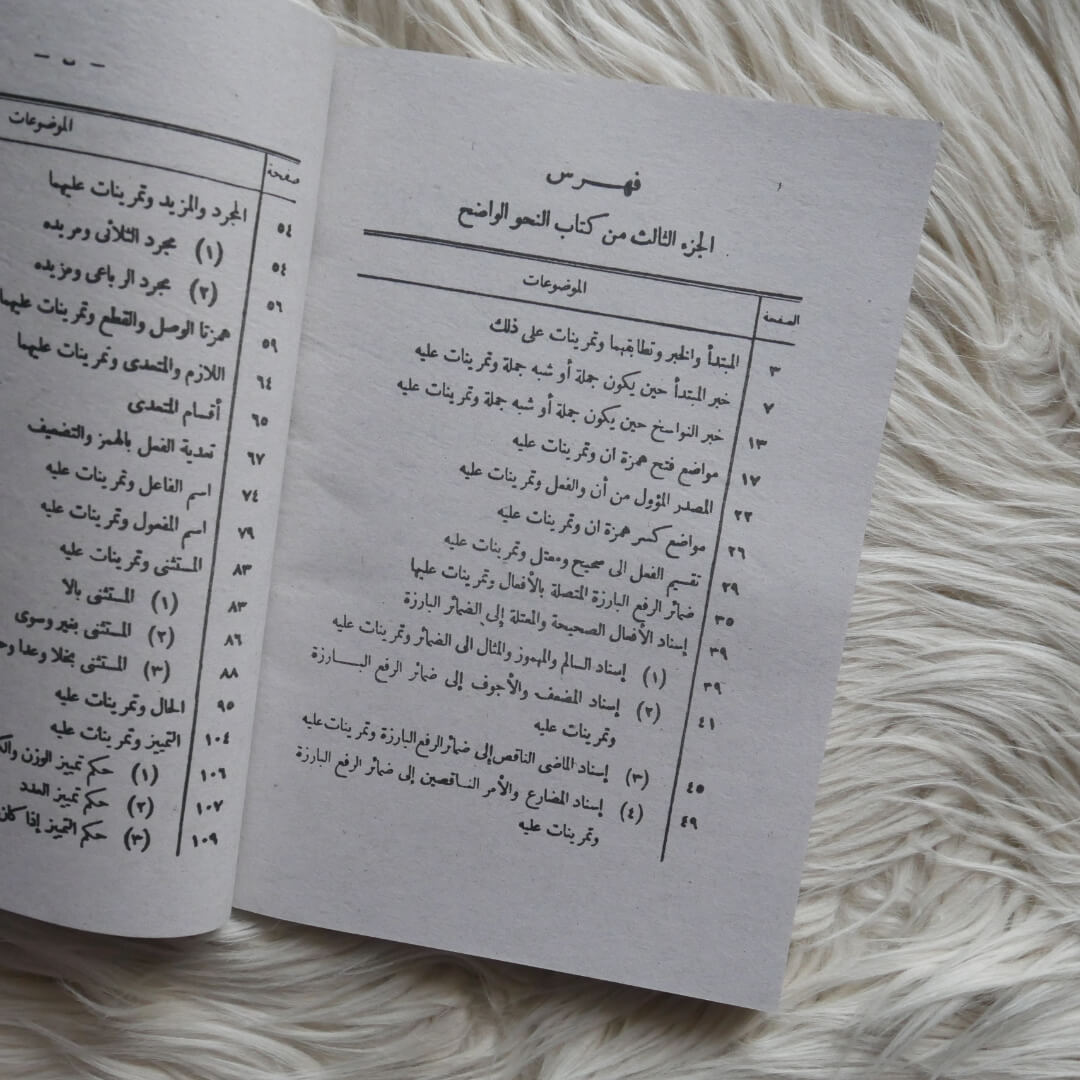 فهرس
الجزء الثالث من كتاب النحو الواضح
الصفحة الموضوعات
٣ المبتدأ والخبر وتطابقهما وتمرينات على ذلك
٧ خبر المبتدأ حين يكون جملة أو شبه جملة وتمرينات عليه
١٣ خبر النواسخ حين يكون جملة أو شبه جملة وتمرينات عليه
١٧ مواضع فتح همزة ان وتمرينات عليه
٢٢ المصدر المؤول من أن والفعل وتمرينات عليه
٢٦ مواضع كسر همزة ان وتمرينات عليه
٢٩ تقسيم الفعل الى صحيح ومعتل وتمرينات عليه
٣٥ ضمائر الرفع البارزة المتصلة بالأفعال وتمرينات عليها
٣٩ إسناد الأفعال الصحيحة والمعتلة إلى الضمائر البارزة
٣٩ (١) إسناد السالم والمهموز والمثال الى الضمائر وتمرينات عليه
٤١ (٢) إسناد المضعف والأجوف إلى ضمائر الرفع البارزة
وتمرينات عليه
٤٥ (٣) إسناد الماضى الناقص إلى ضمائر الرفع البارزة وتمرينات عليه
٤٩ (٤) إسناد المضارع والأمر الناقصين إلى ضمائر الرفع البارزة
وتمرينات عليه
صفحة الموضوعات
٥٤ المجرد والمزيد وتمرينات عليهما
٥٤ (١) مجرد الثلاثى ومزيده
٥٦ (٢) مجرد الرباعى ومزيده
٥٩ همزتا الوصل والقطع وتمرينات عليهما
٦٤ اللازم والمتعدى وتمرينات عليهما
٦٥ أقسام المتعدى
٦٧ تعدية الفعل بالهمز والتضعيف
٧٤ اسم الفاعل وتمرينات عليه
٧٩ اسم المفعول وتمرينات عليه
٨٣ المستثنى وتمرينات عليه
٨٣ (١) المستثنى بالا
٨٦ (٢) المستثنى بغير وسوى
٨٨ (٣) المستثنى بخلا وعدا
٩٥ الحال وتمرينات عليه
١٠٤ التمييز وتمرينات عليه
١٠٦ (١) حكم تمييز الوزن
١٠٧ (٢) حكم تمييز العدد
١٠٩ (٣) حكم التمييز إذا كان